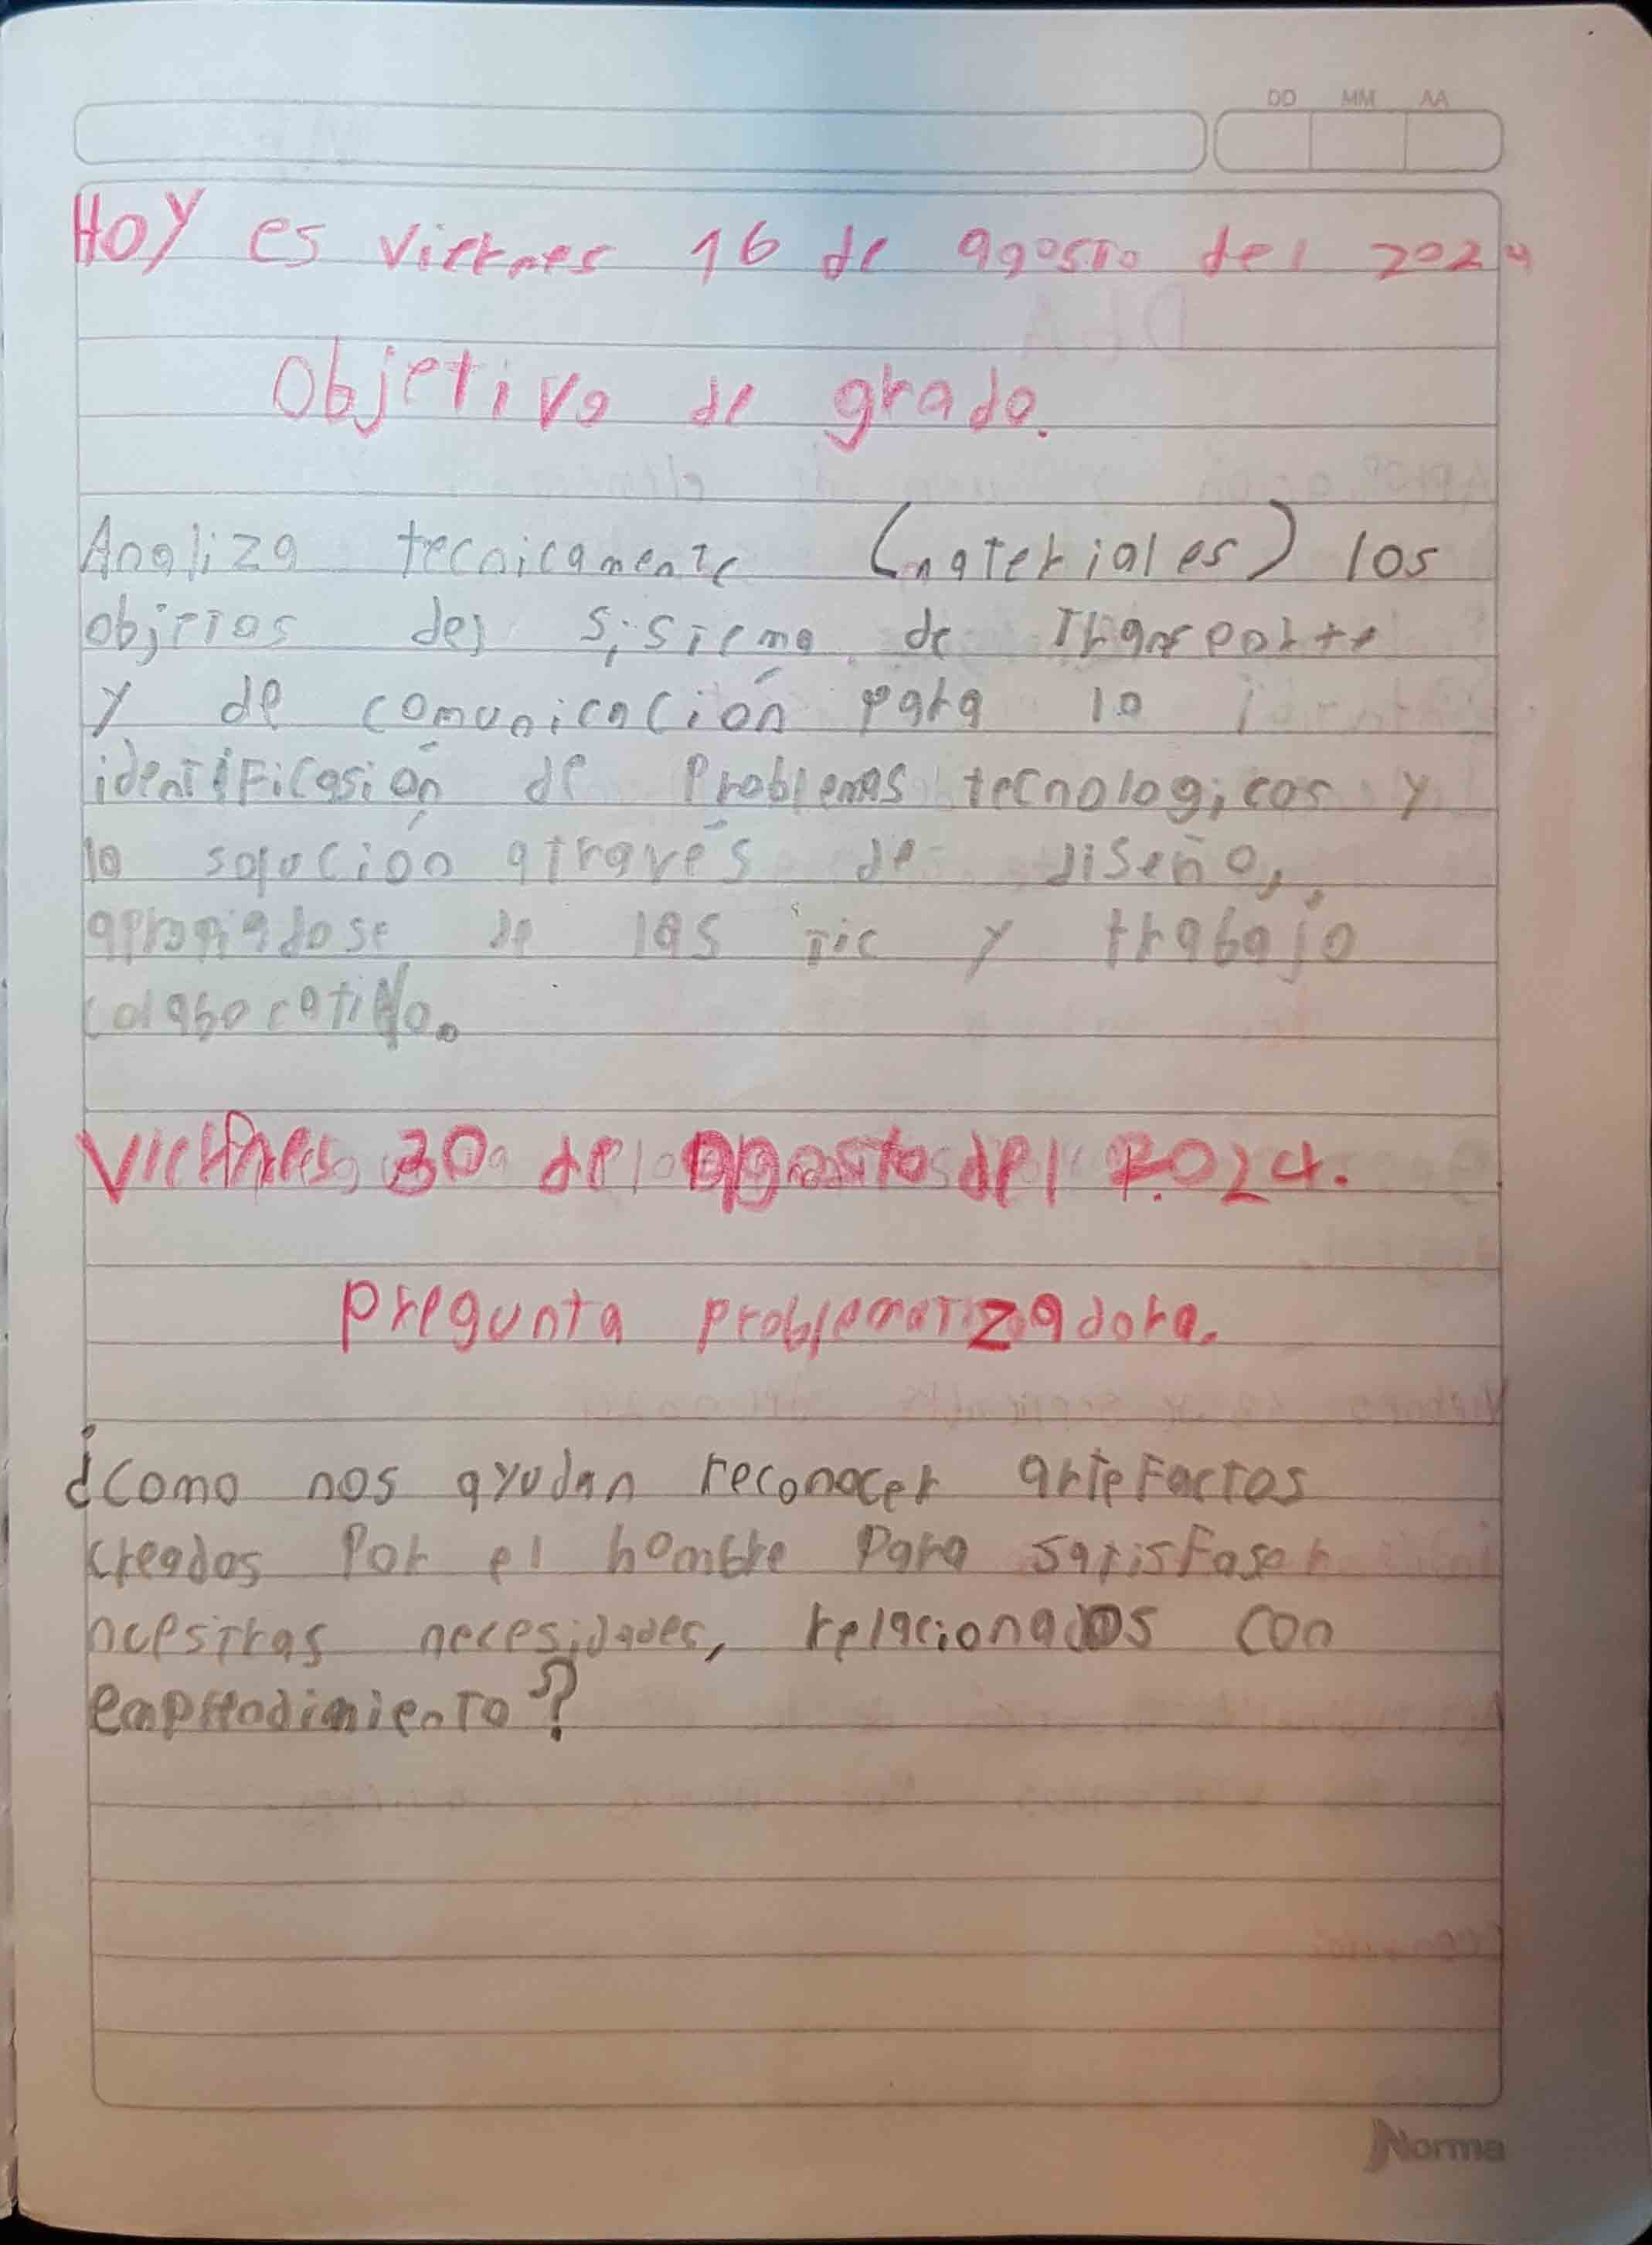 DD MM AA
Hoy es viernes 16 de agosto del 2024
Objetivo de grado.
Analiza tecnicamente (materiales) los
objetos del sistema de transporte
y de comunicación para la
identificasión de problemas tecnologicos y
la solución através de diseño,
apropiadose de las tic y trabajo
colaborativo.
Viernes 30 del agosto del 2.024.
pregunta problematizadora.
¿como nos ayudan reconocer artefactos
creados por el hombre para satisfaser
nuestras necesidades, relacionados con
emprendimiento?
Norma